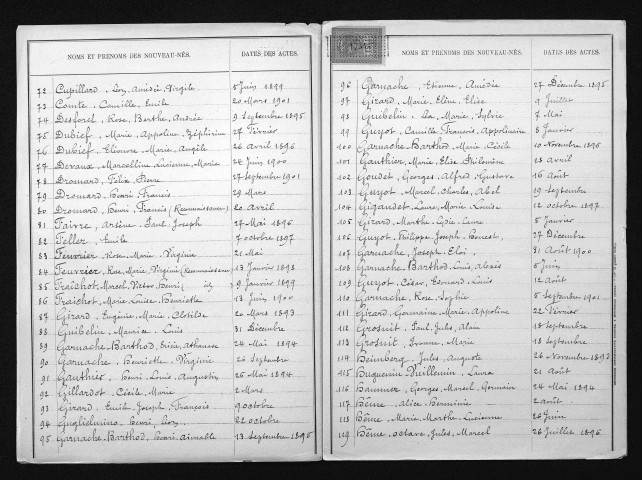 NOMS ET PRENOMS DES NOUVEAU-NÉS. DATES DES ACTES.
72 Cupillard, Léon, Amédée, Virgile 8 Juin 1899
73 Comte, Camille, Emile 20 Mars 1901
74 Desforel, Rose, Berthe, Andrée 9 Septembre 1895
75 Dubief, Marie, Appoline, Zéphirine 27 Février
76 Dubief, Eléonore, Marie, Angèle 26 Avril 1896
77 Devaux, Marcelline, Lucienne, Marie 22 Juin 1900
78 Dromard, Félix, Pierre 27 Septembre 1901
79 Dromard, Henri, Francis 29 Mars
80 Dromard, Henri, Francis (Reconnaissance) 20 Avril
81 Faivre, Arsène, Paul, Joseph 27 Mai 1896
82 Feller, Emile 7 Octobre 1897
83 Feuvrier, Rose, Marie, Virginie 21 Mai
84 Feuvrier, Rose, Marie, Virginie (Reconnaissance) 13 Janvier 1898
85 Fraichot, Marcel, Victor, Henri 9 Janvier 1899
86 Fraichot, Marie, Louise, Henriette 13 Juin 1900
87 Girard, Eugénie, Marie, Clotilde 20 Mars 1893
88 Guibelin, Maurice, Louis 31 Décembre
89 Garnache-Barthod, Athanase 24 Mai 1894
90 Garnache, Henriette, Virginie 26 Septembre
91 Gauthier, Henri, Louis, Augustin 26 Mai 1894
92 Gillardot, Cécile, Marie 2 Mars
93 Girard, Emile, Joseph, François 9 Octobre
94 Guglielmino, Henri, Léon 22 Octobre
95 Garnache-Barthod, Henri, Aimable 13 Septembre 1895
NOMS ET PRENOMS DES NOUVEAU-NÉS. DATES DES ACTES.
96 Garnache, Etienne, Amédée 27 Décembre 1895
97 Girard, Marie, Eline, Elise 9 Juillet
98 Guibelin, Léa, Marie, Sylvie 7 Mai
99 Guyot, Camille, François, Appolinaire 8 Janvier
100 Garnache-Barthod, Marie, Cécile 10 Novembre 1896
101 Gauthier, Marie, Elise, Philomène 18 Avril
102 Goudet, Georges, Alfred, Gustave 16 Août
103 Guyot, Marcel, Charles, Abel 19 Septembre
104 Gigandet, Laure, Marie, Louise 12 Octobre 1897
105 Girard, Marthe, Lydie, Laure 5 Janvier
106 Guyot, Philippe, Joseph, Ernest 27 Décembre
107 Garnache, Joseph, Eloi 31 Août 1900
108 Garnache-Barthod, Louis, Alexis 5 Juin
109 Guyot, César, Edouard, Louis 12 Août
110 Garnache, Rose, Sophie 5 Septembre 1901
111 Girard, Germaine, Marie, Appoline 22 Février
112 Grosnit, Paul, Jules, Alain 18 Septembre
113 Grosnit, Ivonne, Marie 18 Septembre
114 Heimberg, Jules, Auguste 26 Novembre 1893
115 Huguenin-Vuillemin, Laura 21 Août
116 Haumner, Georges, Marcel, Germain 24 Mai 1894
117 Hême, Alice, Herminie 2 Août
118 Hême, Marie, Marthe, Lucienne 26 Juin
119 Hême, Octave, Jules, Marcel 26 Juillet 1896